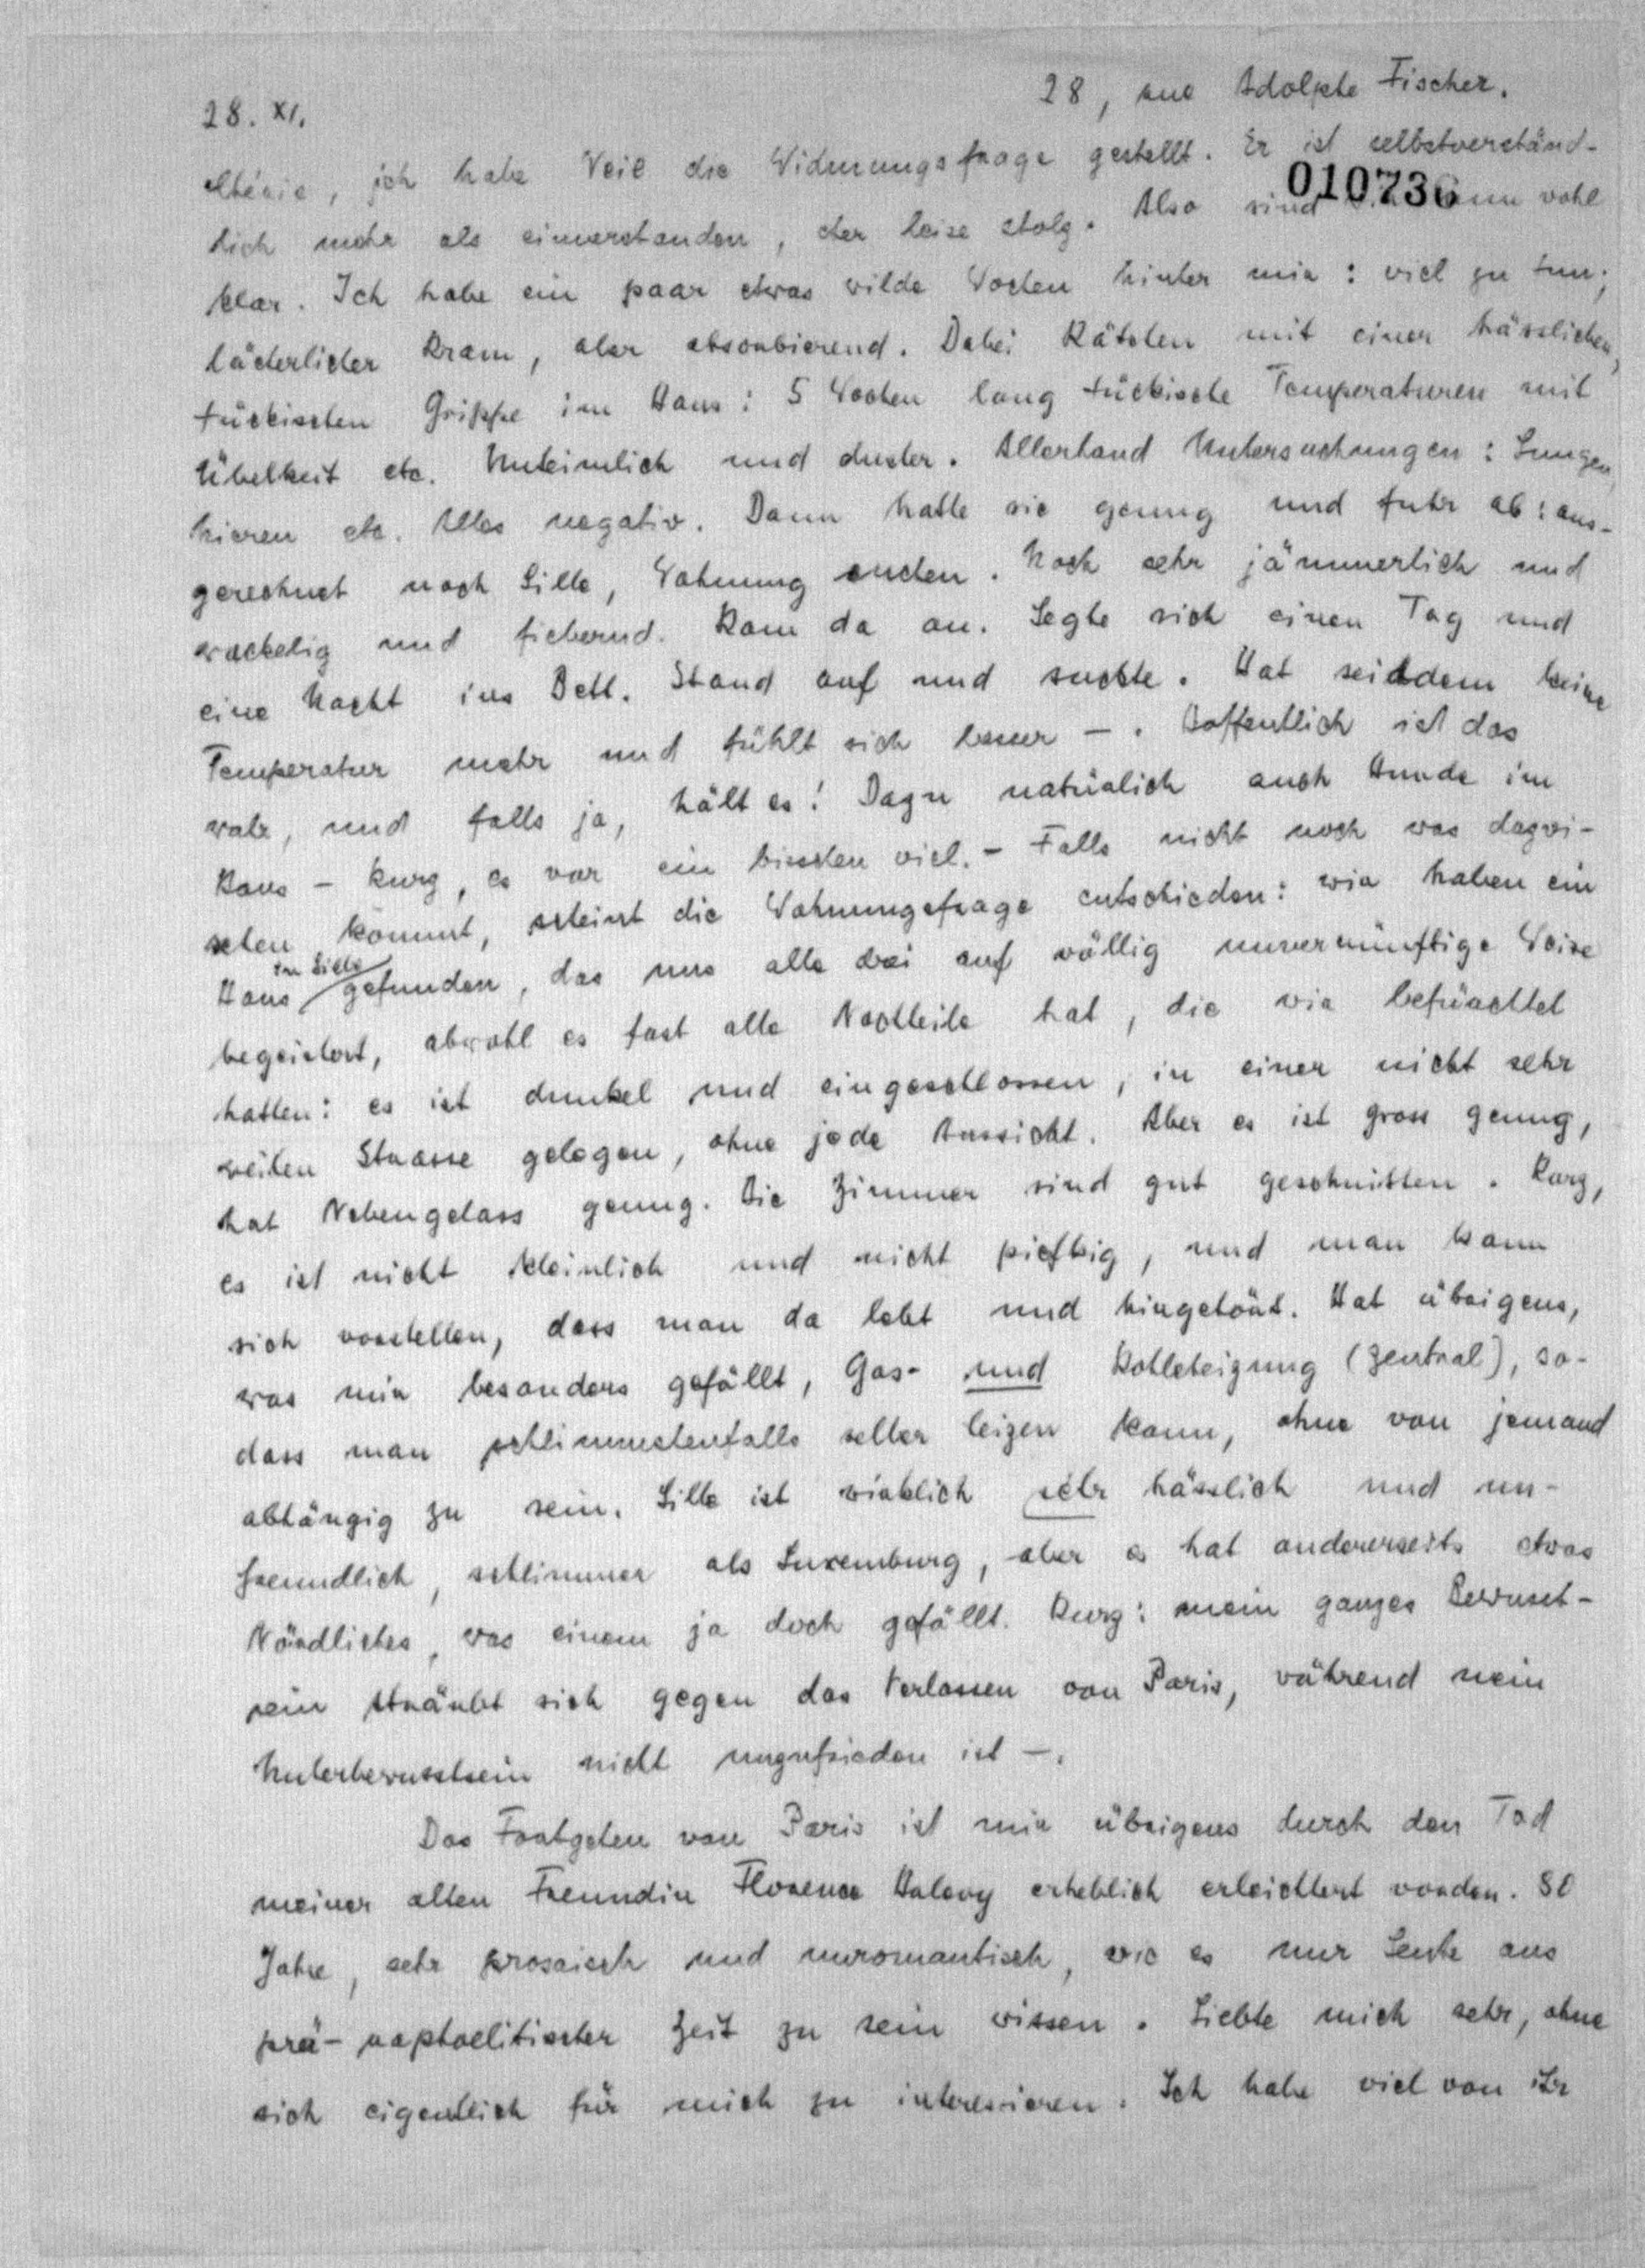 28. XI.
28, rue Adolphe Fischer.
Chérie, ich habe Weil die Widmungsfrage gestellt. Er ist selbstverständ-
010736
lich mehr als einverstanden, eher leise stolz. Also sind wohl
klar. Ich habe ein paar etwas wilde Wochen hinter mir: viel zu tun;
lächerlicher Kram, aber absorbierend. Dabei Kätchen mit einer hässlichen,
tückischen Grippe im Haus: 5 Wochen lang tückische Temperaturen mit
Übelkeit etc. Unheimlich und duster. Allerhand Untersuchungen: Lungen,
Nieren etc. Alles negativ. Dann hatte sie genug und fuhr ab: aus-
gerechnet nach Lille, Wohnung suchen. Noch sehr jämmerlich und
wackelig und fiebernd. Kam da an. Legte sich einen Tag und
eine Nacht ins Bett. Stand auf und suchte. Hat seitdem keine
Temperatur mehr und fühlt sich besser –. Hoffentlich ist das
wahr, und falls ja, hält es! Dazu natürlich auch Hunde im
Haus – kurz, es war ein bisschen viel. – Falls nicht noch was dazwi-
schen kommt, scheint die Wohnungsfrage entschieden: wir haben ein
Haus in Lille gefunden, das uns alle drei auf völlig unvernünftige Weise
begeistert, obwohl es fast alle Nachteile hat, die wir befürchtet
hatten: es ist dunkel und eingeschlossen, in einer nicht sehr
weiten Strasse gelegen, ohne jede Aussicht. Aber es ist gross genug,
hat Nebengelass genug. Die Zimmer sind gut geschnitten. Kurz,
es ist nicht kleinlich und nicht piefkig, und man kann
sich vorstellen, dass man da lebt und hingehört. Hat übrigens,
was mir besonders gefällt, Gas- und Kohleheizung (zentral), so-
dass man schlimmstenfalls selber heizen kann, ohne von jemand
abhängig zu sein. Lille ist wirklich sehr hässlich und un-
freundlich, schlimmer als Luxemburg, aber es hat andererseits etwas
Nördliches, was einem ja doch gefällt. Kurz: mein ganzes Bewusst-
sein sträubt sich gegen das Verlassen von Paris, während mein
Unterbewusstsein nicht unzufrieden ist –.
Das Fortgehen von Paris ist mir übrigens durch den Tod
meiner alten Freundin Florence Halevy erheblich erleichtert worden. 80
Jahre, sehr prosaisch und unromantisch, wie es nur Leute aus
prä-raphaelitischer Zeit zu sein wissen. Liebte mich sehr, ohne
sich eigentlich für mich zu interessieren. Ich habe viel von ihr